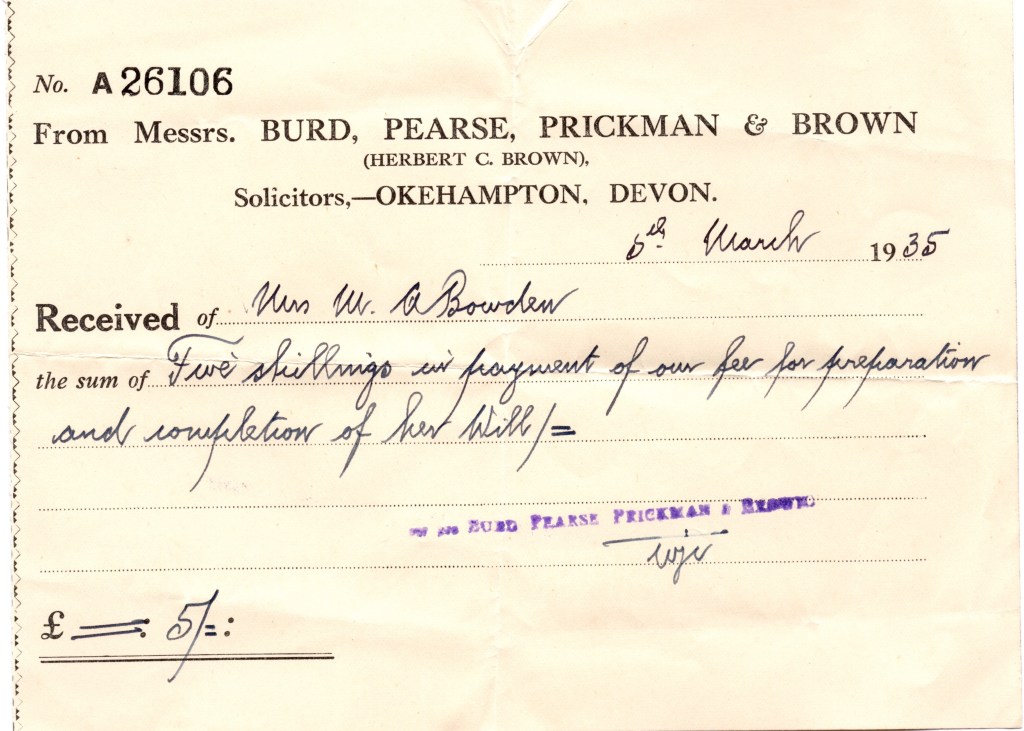 No. A26106
From Messrs. BURD, PEARSE, PRICKMAN & BROWN
(HERBERT C. BROWN),
Solicitors,—OKEHAMPTON, DEVON.
5th March 1935
Received of Mrs M. A Bowden
the sum of Five shillings in payment of our fee for preparation
and completion of her Will/=
BURD PEARSE PRICKMAN & BROWN
£ ==: 5/=: